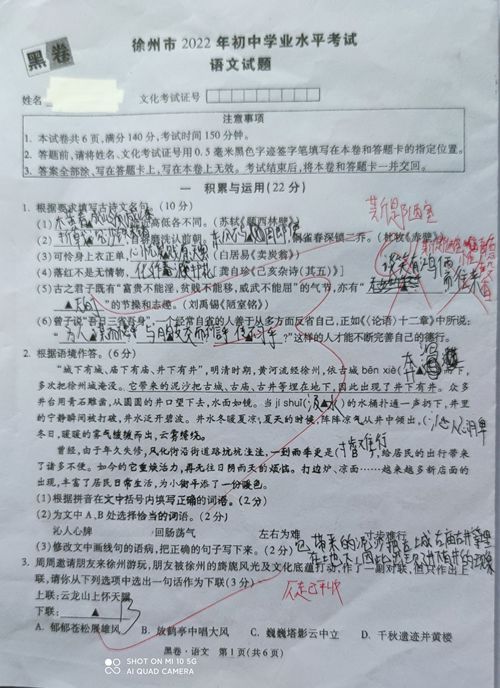 黑卷
徐州市 2022 年初中学业水平考试
语文试题
姓名
文化考试证号
注意事项
1. 本试卷共 6 页,满分 140 分,考试时间 150 分钟。
2. 答题前,请将姓名、文化考试证号用 0.5 毫米黑色字迹签字笔填写在本卷和答题卡的指定位置。
3. 答案全部涂、写在答题卡上,写在本卷上无效。考试结束后,将本卷和答题卡一并交回。
一 积累与运用(22 分)
1. 根据要求填写古诗文名句。(10 分)
(1) 高低各不同。(苏轼《题西林壁》)
(2) 自将磨洗认前朝。 铜雀春深锁二乔。(杜牧《赤壁》)
(3)可怜身上衣正单, (白居易《卖炭翁》)
(4)落红不是无情物, 龚自珍《己亥杂诗(其五)》]
(5)古之君子既有“富贵不能淫,贫贱不能移,威武不能屈”的气节,亦有“
”的节操和志趣。(刘禹锡《陋室铭》)
(6)曾子说“吾日三省吾身”,一个经常自省的人善于从多方面反省自己,正如《〈论语〉十二章》中所说:
“为人 ?”这样的人才能不断完善自己的德行。
2. 根据语境作答。(6 分)
“城下有城、庙下有庙、井下有井”,明清时期,黄河流经徐州,依古城 bēn xiè( 而下,
多次把徐州城淹没。它带来的泥沙把古城、古庙、古井等埋在地下,因此出现了井下有井。众多
井台用青石雕凿,从圆圆的井口望下去,水面如镜。当 jí shuǐ( )的水桶扑通一声扔下,井里
的宁静瞬间被打破,井水泛开碧波。井水冬暖夏凉,夏天的时候,阵阵凉气从井中倾出,
冬日,暖暖的雾气缓缓而出,云雾缭绕。
曾经,由于年久失修,风化街沿街道路坑坑洼洼,一到雨季更是 ,给居民的出行带来
了诸多不便。如今的它重焕活力,再无往日阴雨天的烦恼。打边炉、凉面……越来越多新店面的
出现,丰富了居民日常生活,为小街平添了一份暖色。
(1)根据拼音在文中括号内填写正确的词语。(2 分)
(2)为文中 A、B 处选择恰当的词语。(2 分)
沁人心脾 回肠荡气 左右为难
(3)修改文中画线句的语病,把正确的句子写下来。(2 分)
3. 周周邀请朋友来徐州游玩,朋友被徐州的旖旎风光及文化底蕴打动,作了一副对联,但只作出上
联,请你从下列选项中选出一句话作为下联(3 分)
上联:云龙山上怀天赐
下联: B
A. 郁郁苍松展雄风 B. 放鹤亭中唱大风 C. 巍巍塔影云中立 D. 千秋遗迹并黄楼
黑卷·语文 第 1 页(共 6 页)
SHOT ON MI 10 5G
AI QUAD CAMERA